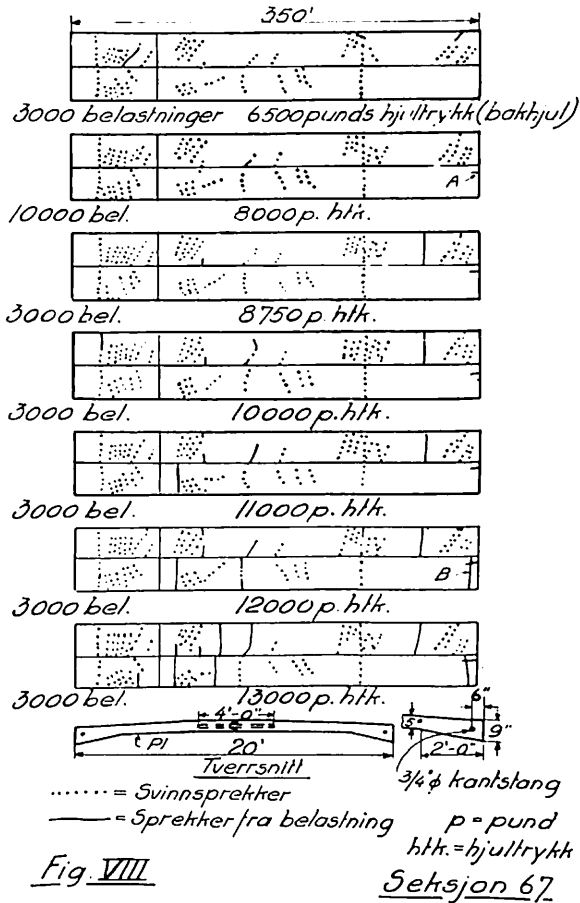 350'
3000 belastninger 6500 punds hjultrykk (bakhjul)
A
10000 bel. 8000 p. htk.
3000 bel. 8750 p. htk.
3000 bel. 10000 p. htk.
3000 bel. 11000 p. htk.
B
3000 bel. 12000 p. htk.
3000 bel. 13000 p. htk.
4'-0"
6"
5"
9"
pl
20'
2'-0"
Tverrsnitt
3/4"ϕ kantstang
...... = Svinnsprekker
—— = Sprekker fra belastning
p = pund
htk. = hjultrykk
Fig. VIII
Seksjon 67.